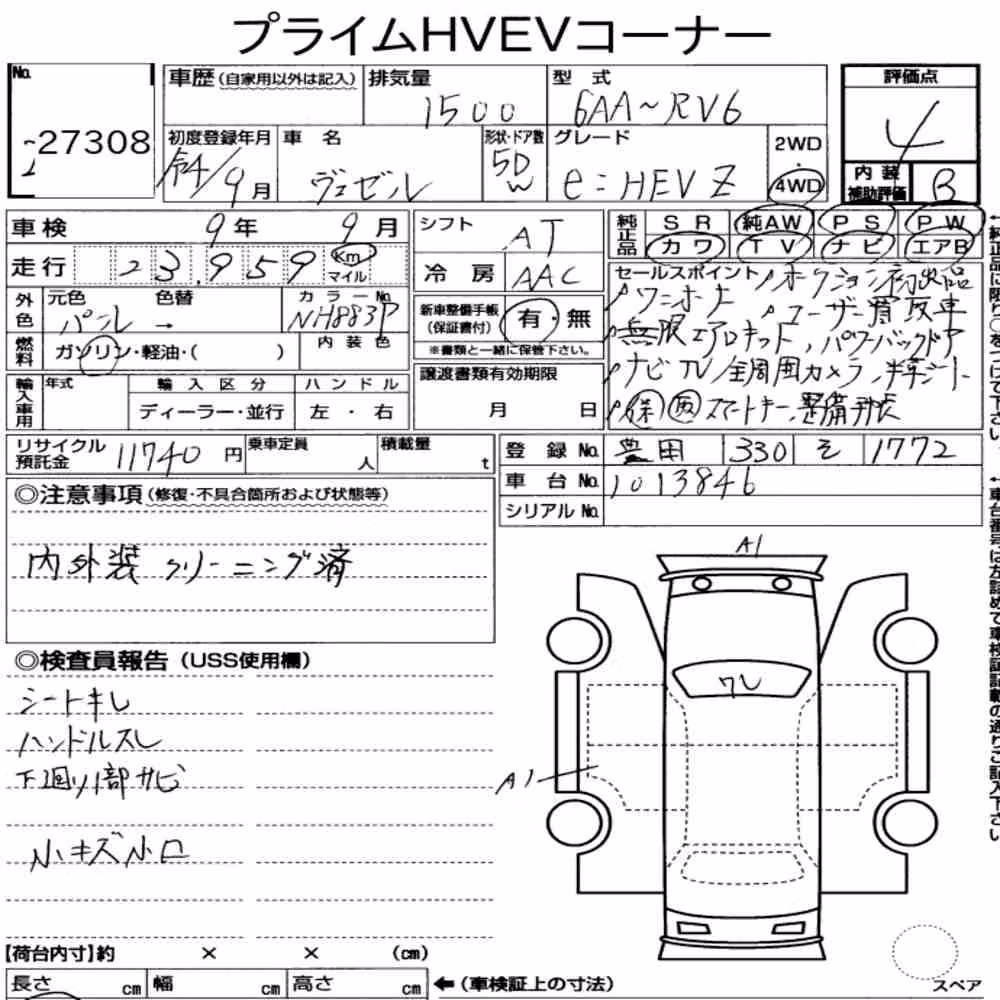 プライムHVEVコーナー
No. 27308
車歴 (自家用以外は記入)
排気量 1500
型式 6AA~RV6
評価点 4
初度登録年月 令4/9月
車名 ヴェゼル
形状・ドア数 5D W
グレード e:HEV Z
2WD・4WD
内装補助評価 B
車検 9年 9月
シフト AT
純正品 SR 純AW PS PW
カワ TV ナビ エアB
走行 23,959 Km マイル
冷房 AAC
外色 元色 パール 色替 → カラーNo. NH883P
新車整備手帳(保証書付) 有・無
※書類と一緒に保管下さい。
燃料 ガソリン・軽油・( ) 内装色
輸入車用 年式 輸入区分 ハンドル
ディーラー・並行 左・右
譲渡書類有効期限
月 日
セールスポイント オークション初出品
ワンオーナー ユーザー買取車
無限エアロキット, パワーバックドア
ナビTV 全周囲カメラ, 半革シート
保 取 スマートキー, 整備手帳
リサイクル預託金 11740円
乗車定員 人
積載量 t
登録No. 豊田 330 そ 1772
車台No. 1013846
シリアルNo.
◎注意事項(修復・不具合箇所および状態等)
内外装クリーニング済
◎検査員報告 (USS使用欄)
シートキレ
ハンドルスレ
下廻り1部サビ
小キズ小凹
A1
ワレ
A1
【荷台内寸】約 × × (cm)
長さ cm 幅 cm 高さ cm
←(車検証上の寸法)
スペア
←純正品に限り○をつけて下さい。
←車台番号は左詰めで車検証記載の通りご記入下さい